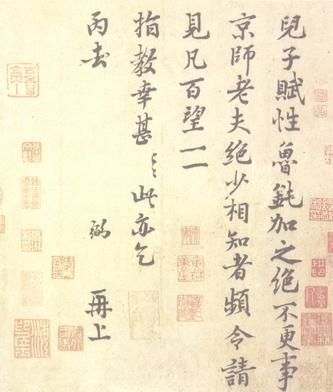 兒子賦性魯鈍加之絕不更事
京師老夫絕少相知者頻令請
見凡百望一一
指教幸甚〻此亦乞
丙去 弼 再上